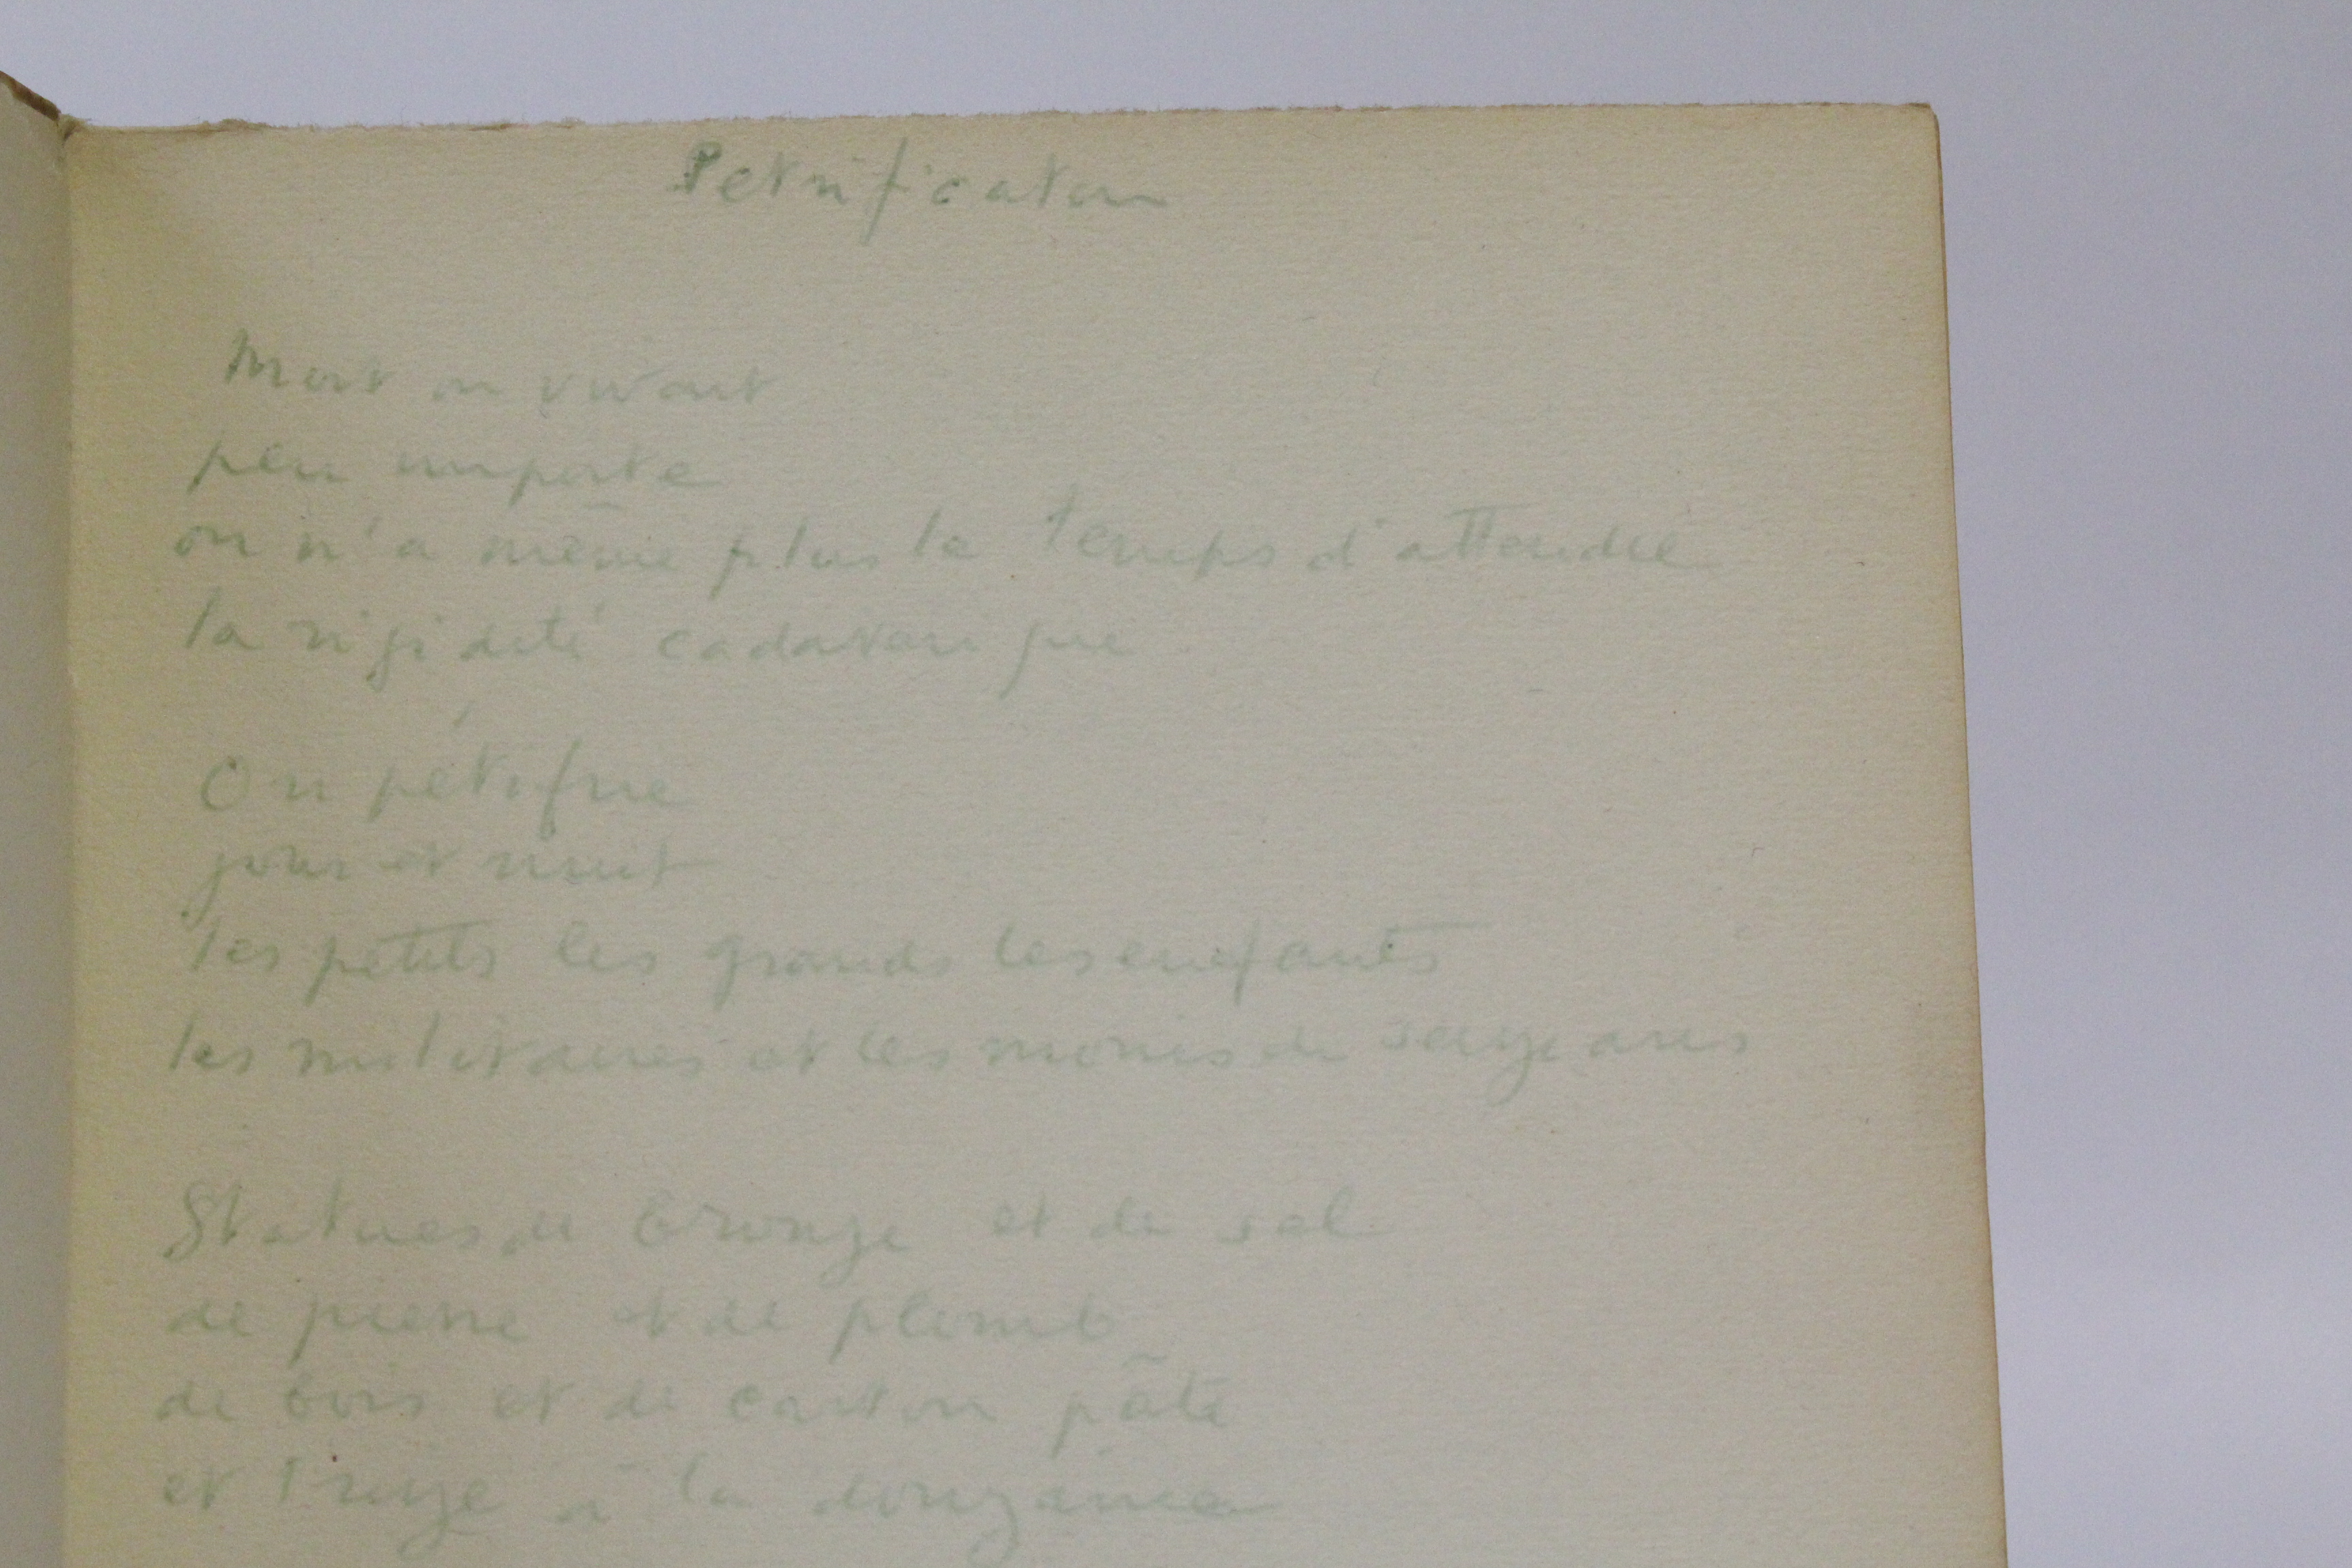 Petrification
Mort ou vivant
peu importe
on n'a même plus le temps d'attendre
la rigidité cadavérique
On pétrifie
jour et nuit
les petits les grands les enfants
les militaires et les moins de seize ans
Statues de bronze et de sel
de pierre et de plomb
de bois et de carton pâte
et treize à la douzaine